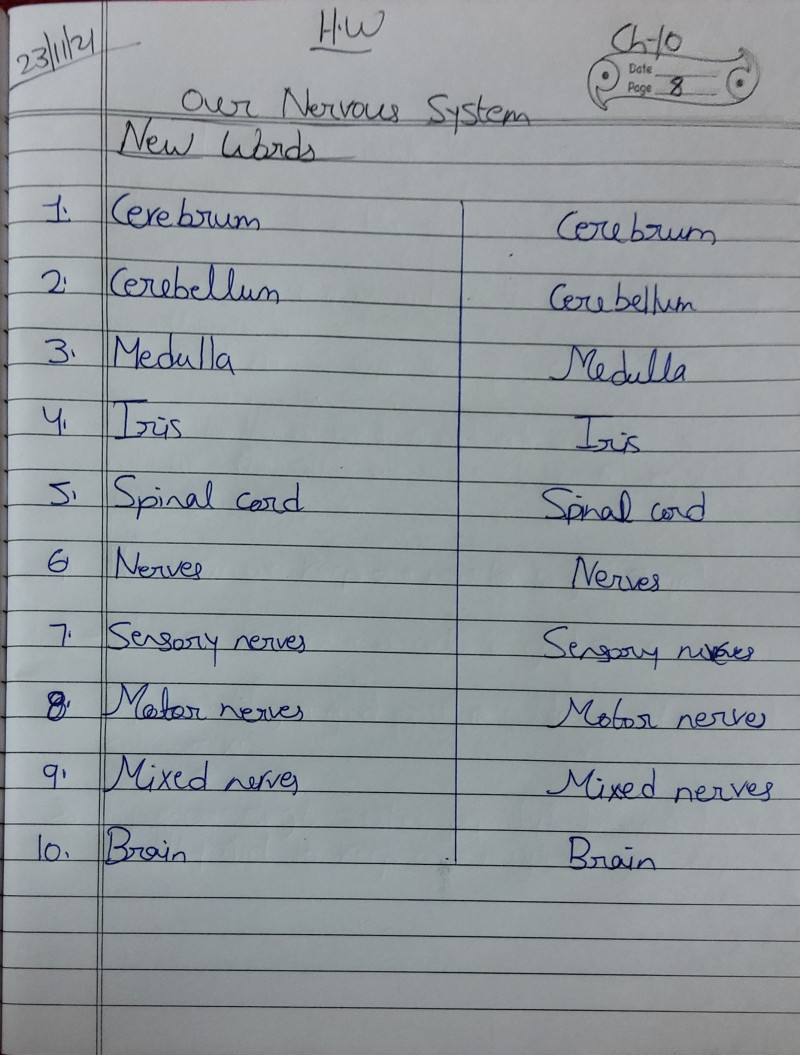 23/11/21
H.W
Ch-10
Date
Page 8
Our Nervous System
New Words
1. Cerebrum Cerebrum
2. Cerebellum Cerebellum
3. Medulla Medulla
4. Iris Iris
5. Spinal cord Spinal cord
6 Nerves Nerves
7. Sensory nerves Sensory nerves
8. Motor nerves Motor nerves
9. Mixed nerves Mixed nerves
10. Brain Brain